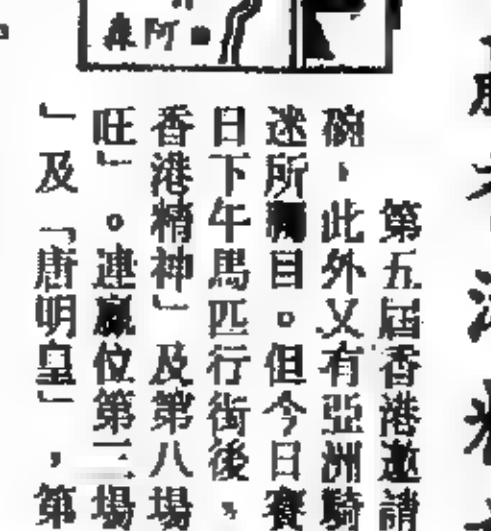 森阿
第五屆香港邀請
碗，此外又有亞洲騎
迷所矚目。但今日賽
日下午馬匹行街後，
香港精神」及第八場
旺」。連贏位第三場
」及「唐明皇」，第